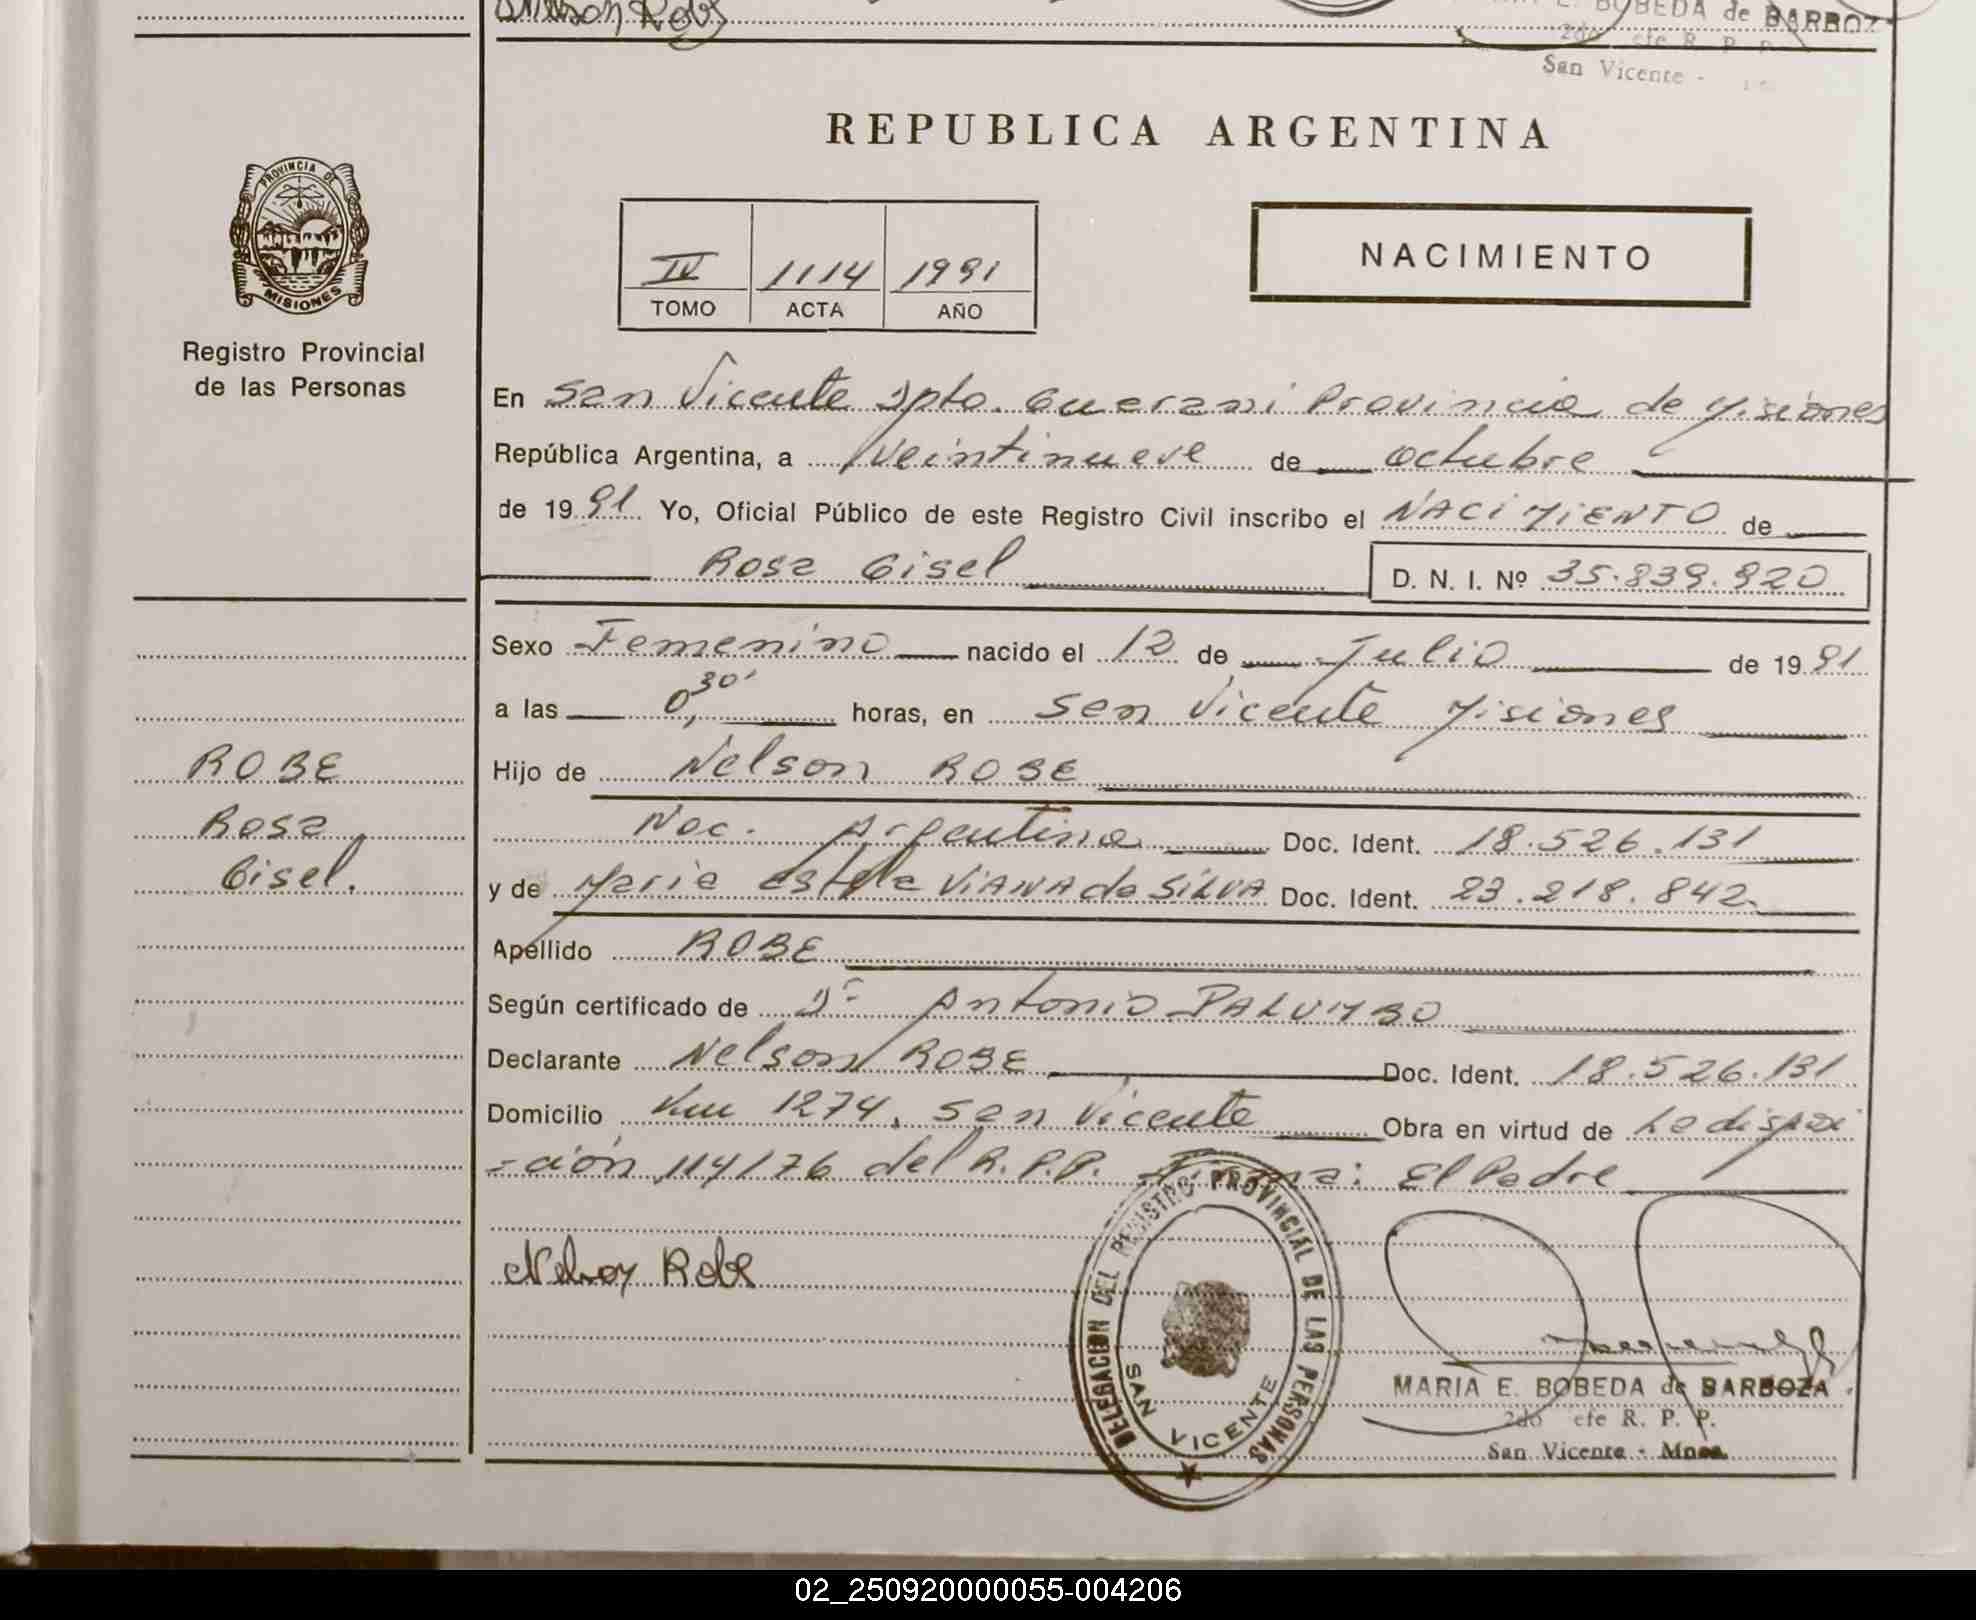 Nelson Robe
E. BOBEDA de BARBOZ
2do efe R. P. P.
San Vicente -
PROVINCIA DE
MISIONES
Registro Provincial
de las Personas
REPUBLICA ARGENTINA
IV 1114 1991
TOMO ACTA AÑO
NACIMIENTO
En San Vicente Dpto. Guarani Provincia de Misiones
República Argentina, a veintinueve de octubre
de 1991 Yo, Oficial Público de este Registro Civil inscribo el NACIMIENTO de
Rosa Gisel D. N. I. Nº 35.839.920
Sexo Femenino nacido el 12 de Julio de 1991
a las 0,30' horas, en San Vicente Misiones
ROBE
Rosa
Gisel.
Hijo de Nelson ROBE
Nac. Argentina Doc. Ident. 18.526.131
y de Maria Estela VIANA da SILVA Doc. Ident. 23.218.842
Apellido ROBE
Según certificado de Dr Antonio PALUMBO
Declarante Nelson ROBE Doc. Ident. 18.526.131
Domicilio Km 1274, San Vicente Obra en virtud de La disposi
=ción 114/76 del R.P.P. Firma: El Padre
Nelson Robe
DELEGACION DEL REGISTRO PROVINCIAL DE LAS PERSONAS
SAN VICENTE
MARIA E. BOBEDA de BARBOZA
2do efe R. P. P.
San Vicente - Mnes.
02_250920000055-004206